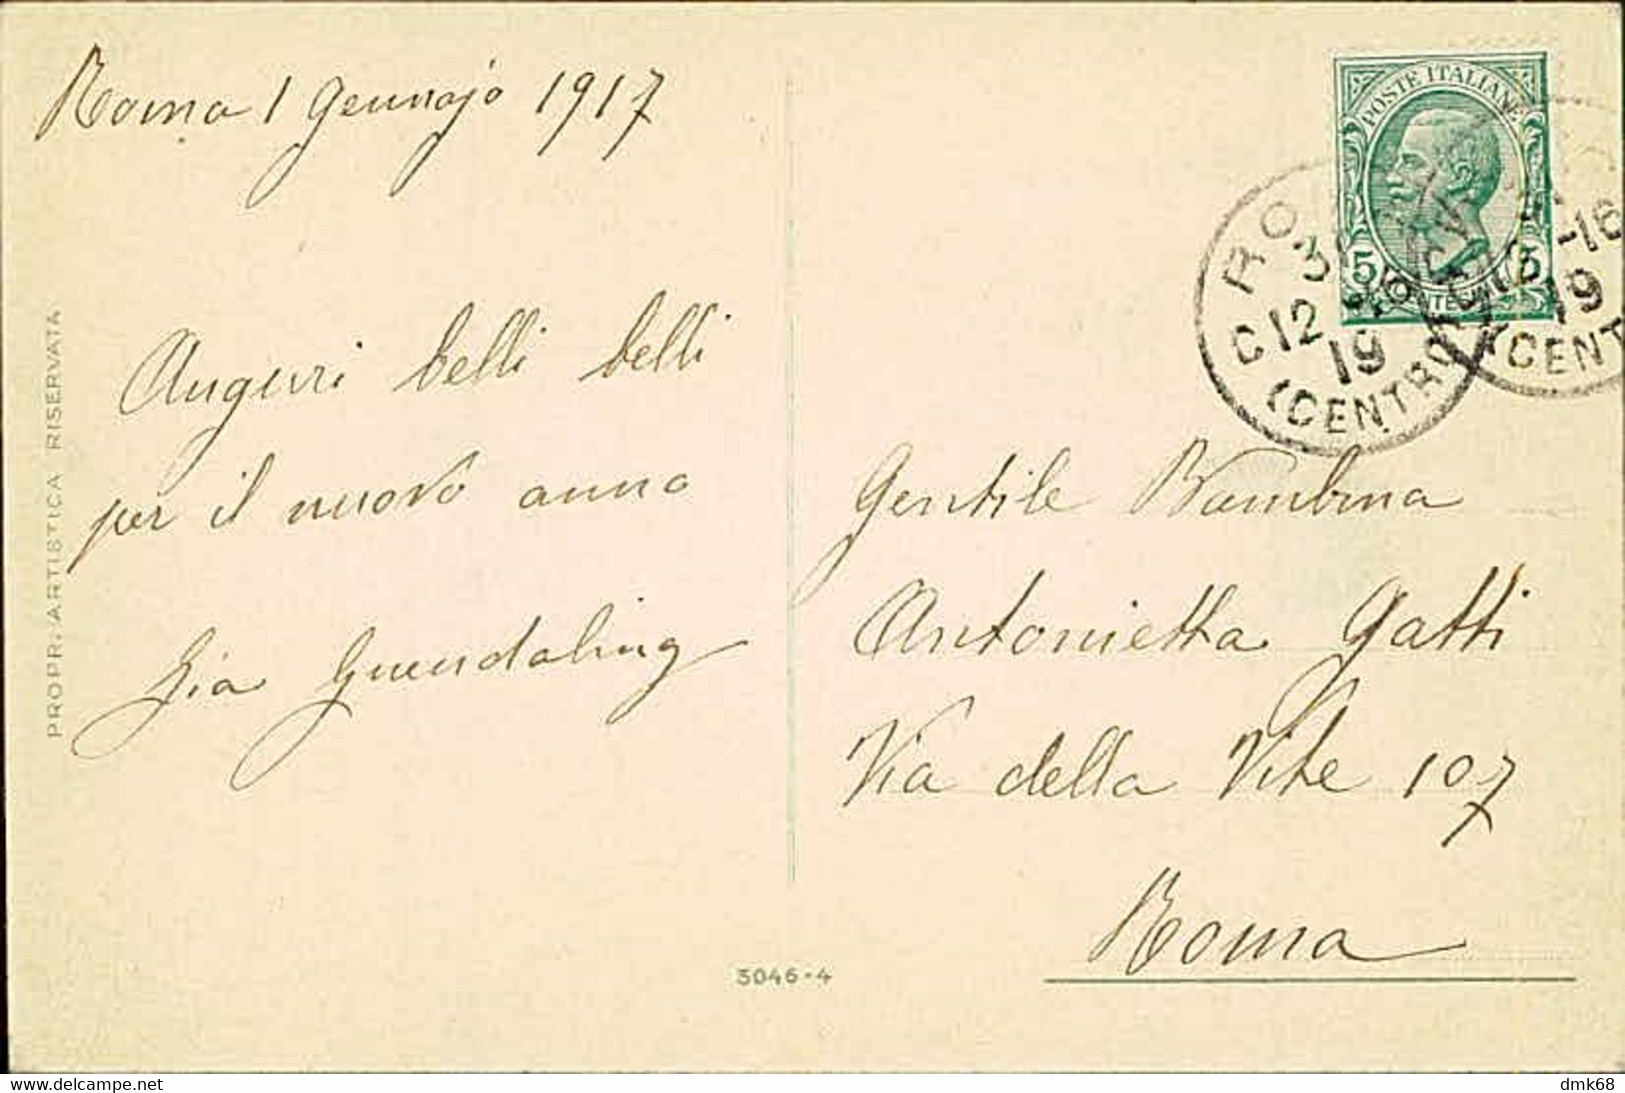 Roma 1 Gennajo 1917
Auguri belli belli
per il nuovo anno
Zia Guendalina
PROPR. ARTISTICA RISERVATA
POSTE ITALIANE
5 5
C12
19
(CENTRO
-16
19
(CENT
Gentile Bambina
Antonietta Gatti
Via della Vite 107
Roma
3046-4
www.delcampe.net
dmk68